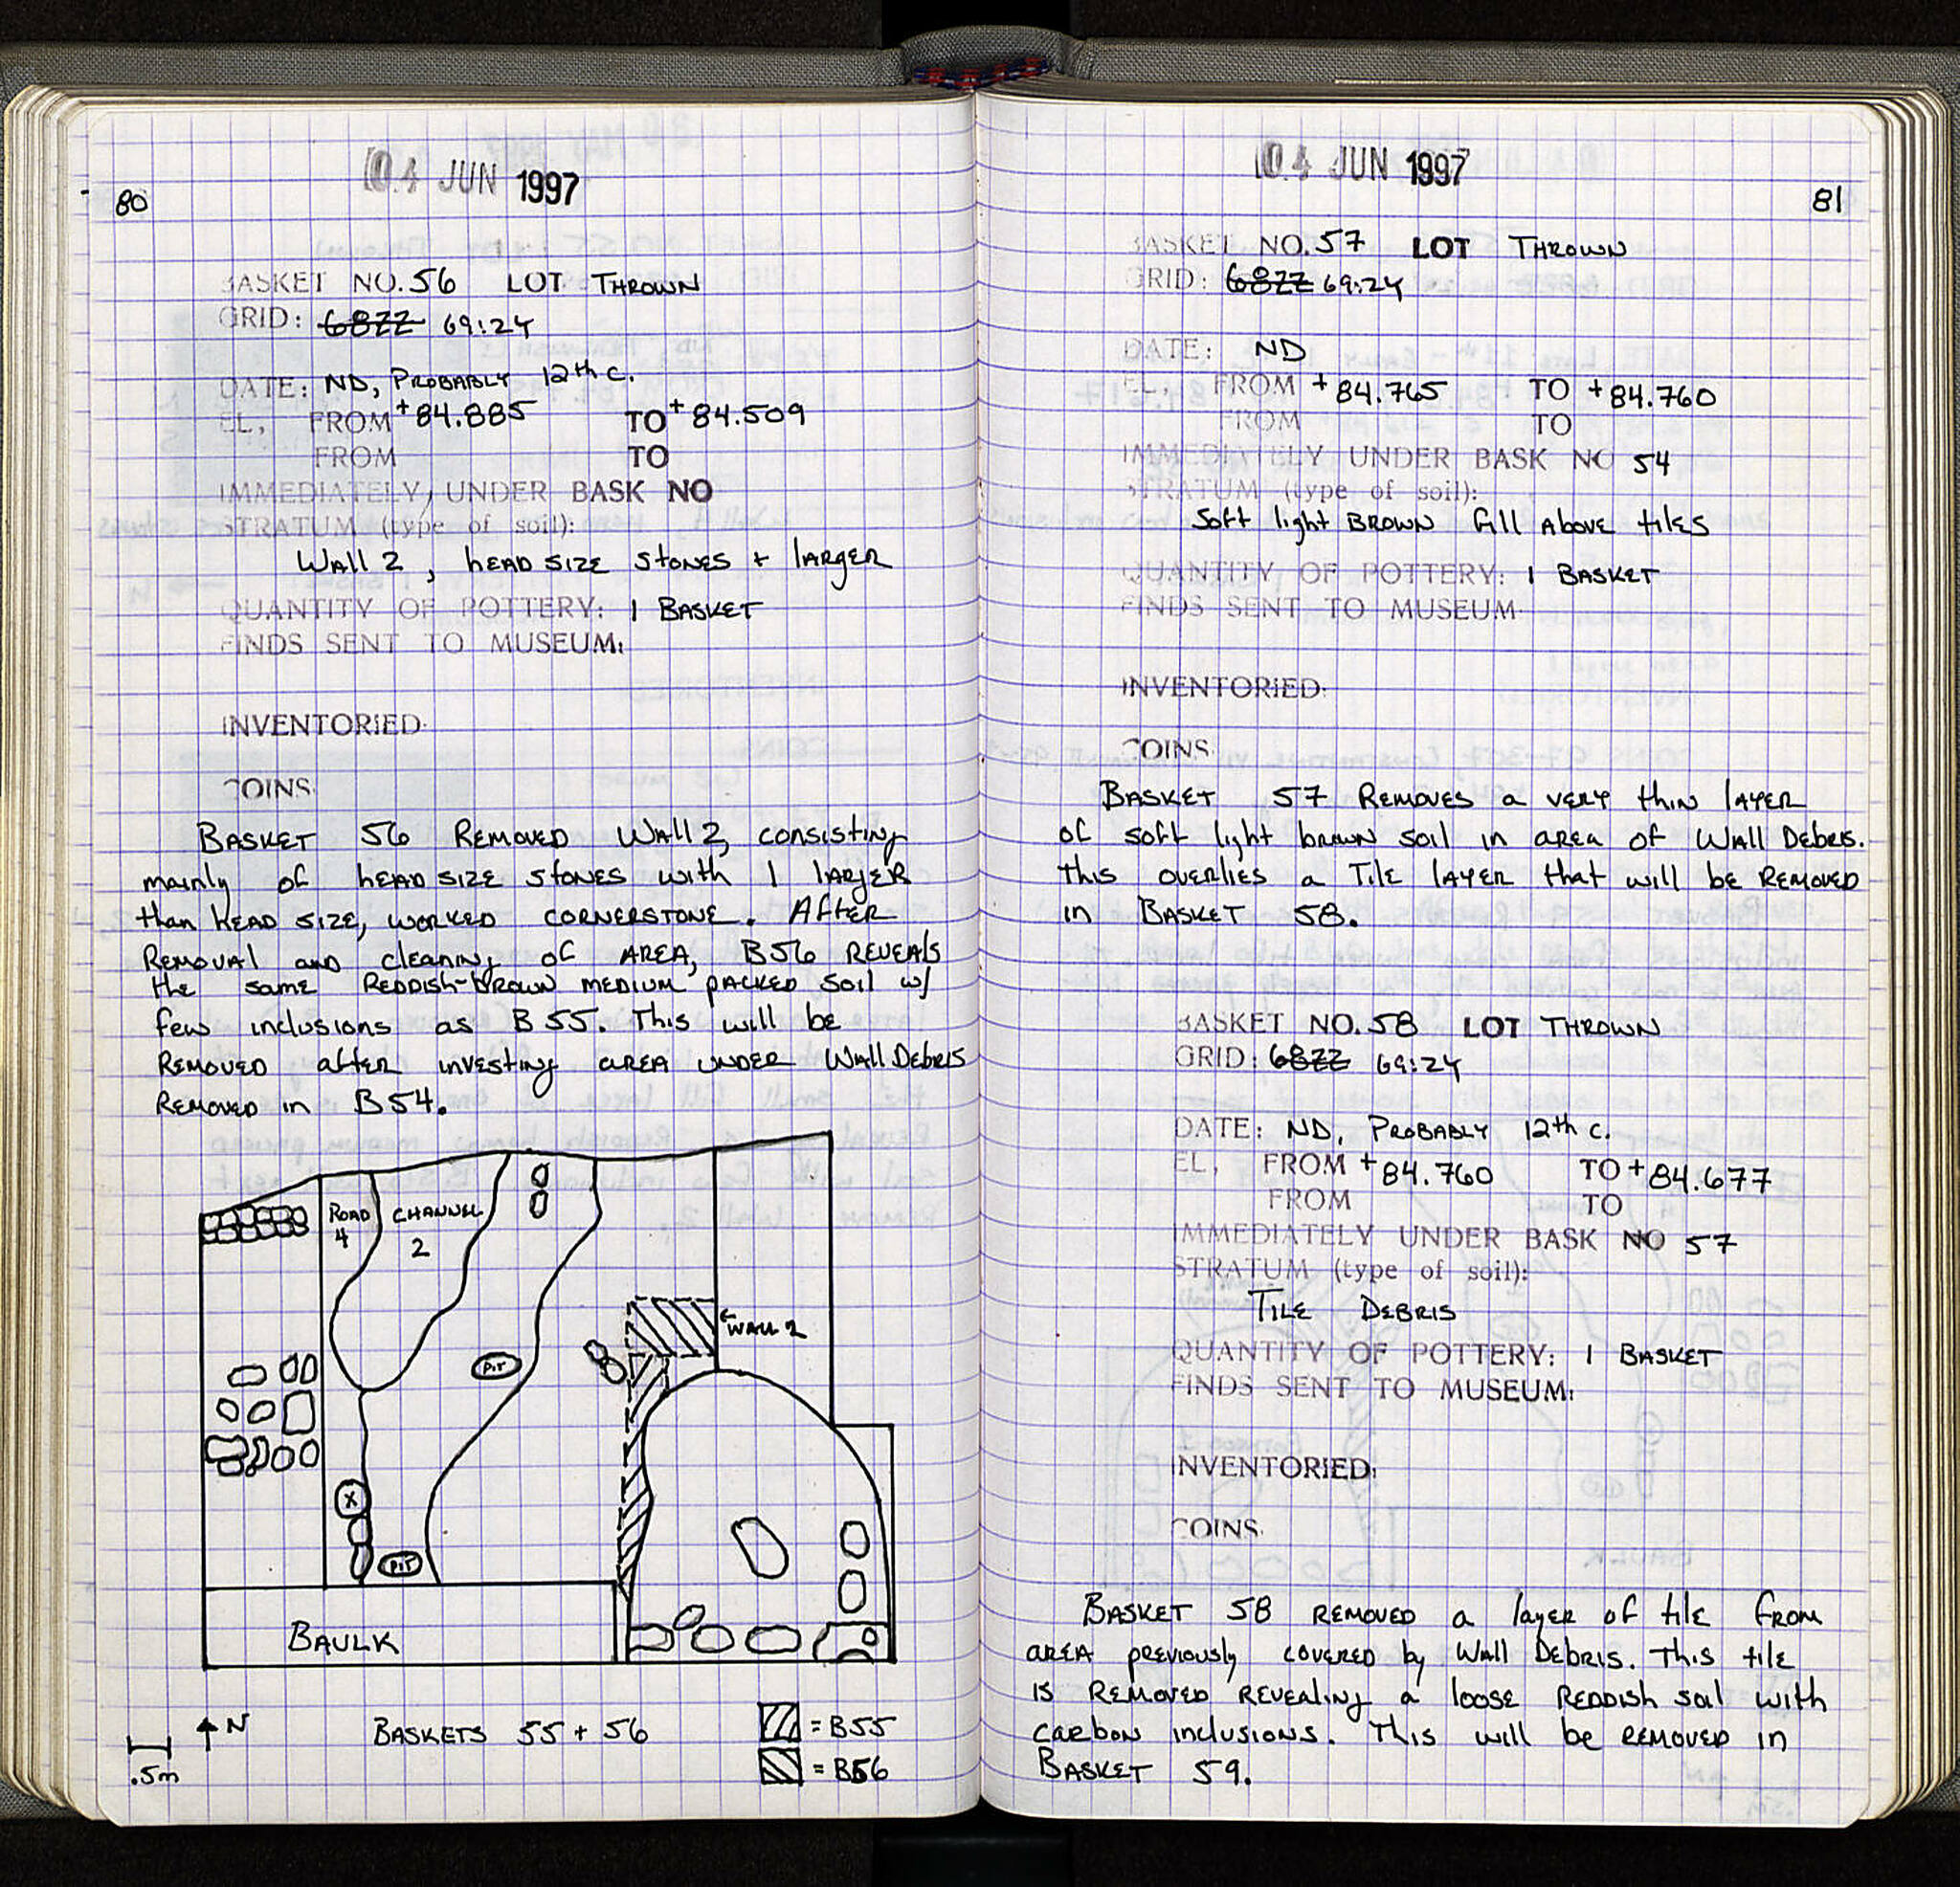 04 JUN 1997
80
BASKET NO. 56 LOT THROWN
GRID: 68ZZ 69:24
DATE: ND, PROBABLY 12th C.
EL, FROM +84.885 TO +84.509
FROM TO
IMMEDIATELY UNDER BASK NO
STRATUM (type of soil):
Wall 2, HEAD SIZE STONES + LARGER
QUANTITY OF POTTERY: 1 BASKET
FINDS SENT TO MUSEUM:
INVENTORIED:
COINS
BASKET 56 REMOVED WALL 2, CONSISTING
mainly of HEAD SIZE STONES with 1 LARGER
than HEAD SIZE, WORKED CORNERSTONE. AFTER
REMOVAL AND cleaning of AREA, B56 REVEALS
the same REDDISH-BROWN MEDIUM PACKED SOIL w/
few inclusions as B55. This will be
REMOVED after investing area UNDER Wall DEBRIS
REMOVED in B54.
ROAD 4
CHANNEL 2
WALL 2
PIT
X
PIT
BAULK
N
.5m
BASKETS 55 + 56
= B55
= B56
04 JUN 1997
81
BASKET NO. 57 LOT THROWN
GRID: 68ZZ 69:24
DATE: ND
EL, FROM +84.765 TO +84.760
FROM TO
IMMEDIATELY UNDER BASK NO 54
STRATUM (type of soil):
Soft light BROWN fill ABOVE tiles
QUANTITY OF POTTERY: 1 BASKET
FINDS SENT TO MUSEUM
INVENTORIED:
COINS
BASKET 57 REMOVES a VERY thin LAYER
of soft light brown soil in area of WALL DEBRIS.
this overlies a TILE LAYER that will be REMOVED
in BASKET 58.
BASKET NO. 58 LOT THROWN
GRID: 68ZZ 69:24
DATE: ND, PROBABLY 12th C.
EL, FROM +84.760 TO +84.677
FROM TO
IMMEDIATELY UNDER BASK NO 57
STRATUM (type of soil):
TILE DEBRIS
QUANTITY OF POTTERY: 1 BASKET
FINDS SENT TO MUSEUM:
INVENTORIED:
COINS
BASKET 58 REMOVED a layer of tile from
AREA previously COVERED by Wall DEBRIS. This tile
is REMOVED REVEALING a loose REDDISH soil with
carbon inclusions. This will be REMOVED in
BASKET 59.